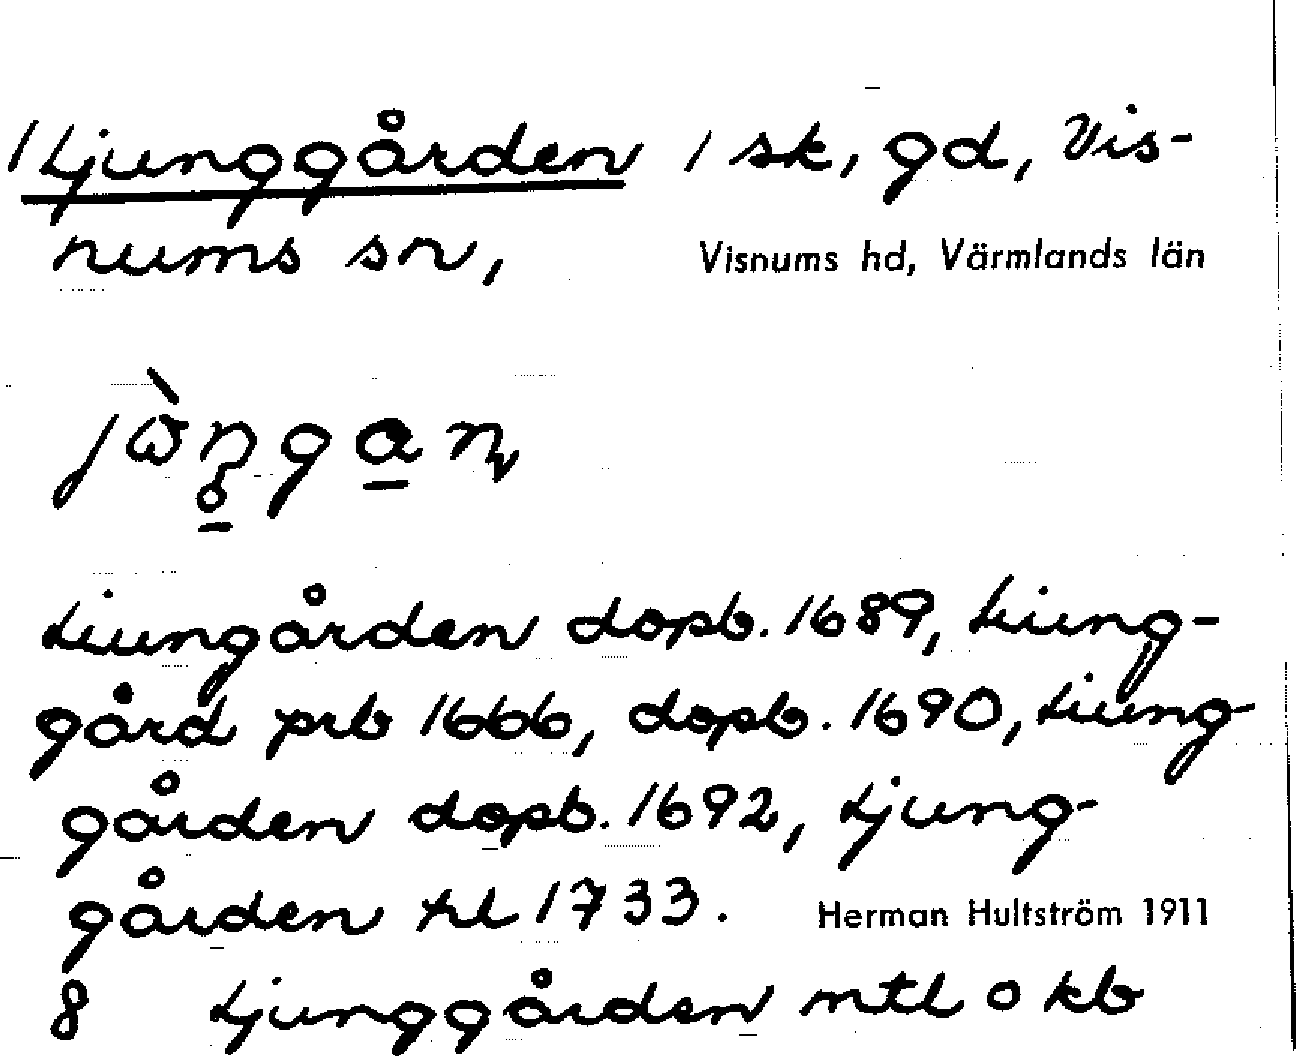 1 Ljunggården 1 sk, gd, Vis-
nums sn, Visnums hd, Värmlands län
Liungården dopb. 1689, Liung-
gård prb 1666, dopb. 1690, Liung-
gården dopb. 1692, Ljung-
gården tl 1733. Herman Hultström 1911
8 Ljunggården mtl o kb